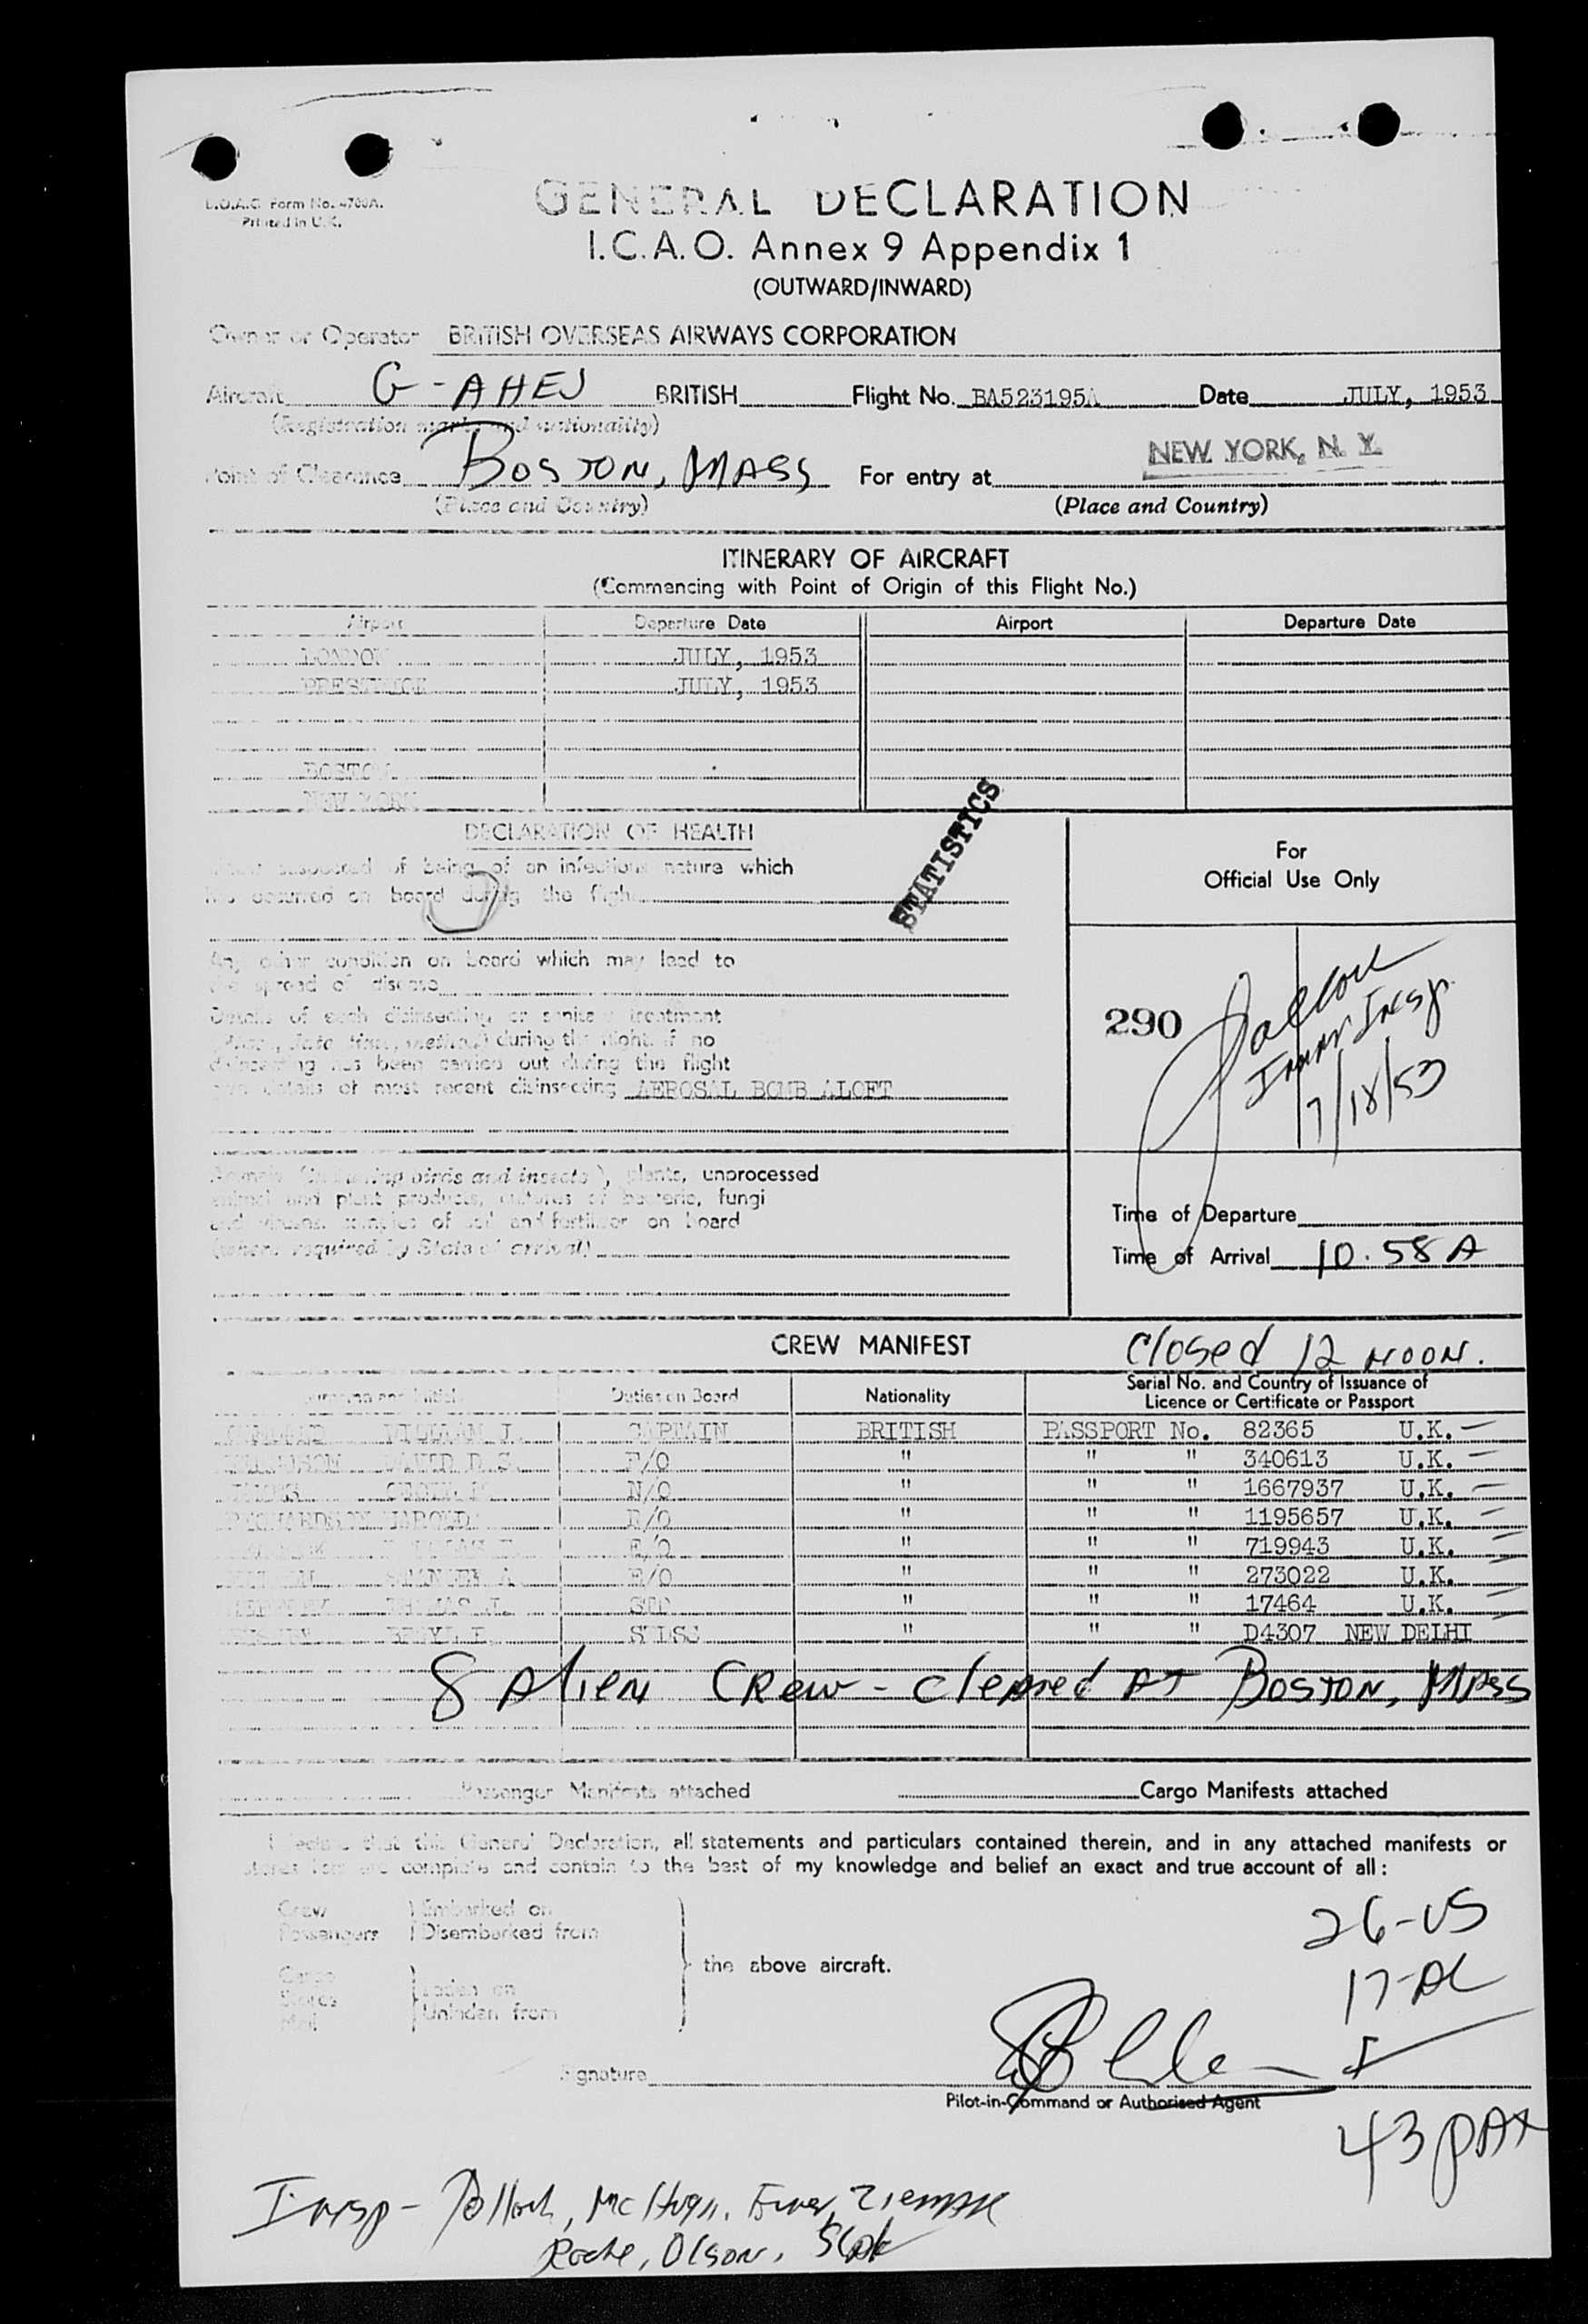 B.O.A.C. Form No. 4700A.
Printed in U.K.
GENERAL DECLARATION
I.C.A.O. Annex 9 Appendix 1
(OUTWARD/INWARD)
Owner or Operator BRITISH OVERSEAS AIRWAYS CORPORATION
Aircraft G-AHEJ BRITISH Flight No. BA523195A Date JULY, 1953
(Registration marks and nationality)
Point of Clearance BOSTON, MASS For entry at NEW YORK, N. Y.
(Place and Country) (Place and Country)
ITINERARY OF AIRCRAFT
(Commencing with Point of Origin of this Flight No.)
Airport Departure Date Airport Departure Date
LONDON JULY, 1953
PRESTWICK JULY, 1953
BOSTON
NEW YORK
STATISTICS
DECLARATION OF HEALTH
suspected of being of an infectious nature which
has occurred on board during the flight
Any other condition on board which may lead to
the spread of disease
Details of each disinsecting or sanitary treatment
(Place, date, time, method) during the flight. If no
disinsecting has been carried out during the flight
give details of most recent disinsecting AEROSAL BOMB ALOFT
Animals (including birds and insects), plants, unprocessed
animal and plant products, cultures of bacteria, fungi
and viruses, samples of soil and fertilizer on board
(where required by State of arrival)
For
Official Use Only
290
Immr Insp.
7/18/53
Time of Departure
Time of Arrival 10.58 A
CREW MANIFEST Closed 12 NOON.
Surname and Initial Duties on Board Nationality Serial No. and Country of Issuance of
Licence or Certificate or Passport
WILLIAM J. CAPTAIN BRITISH PASSPORT No. 82365 U.K.
DAVID D.S. F/O " " " 340613 U.K.
N/O " " " 1667937 U.K.
RICHARDSON HAROLD R/O " " " 1195657 U.K.
E/O " " " 719943 U.K.
STANLEY A. E/O " " " 273022 U.K.
THOMAS J. STD " " " 17464 U.K.
BERYL E. STDSS " " " D4307 NEW DELHI
8 Alien Crew - cleared AT BOSTON, MASS
Passenger Manifests attached Cargo Manifests attached
I declare that this General Declaration, all statements and particulars contained therein, and in any attached manifests or
stores list are complete and contain to the best of my knowledge and belief an exact and true account of all:
Crew Embarked on
Passengers Disembarked from
Cargo
Stores Laden on
Mail Unladen from
the above aircraft.
26-US
17-AL
Signature
Pilot-in-Command or Authorised Agent
43 PAX
Insp - Pollock, McHugh,
Roche, Olson,